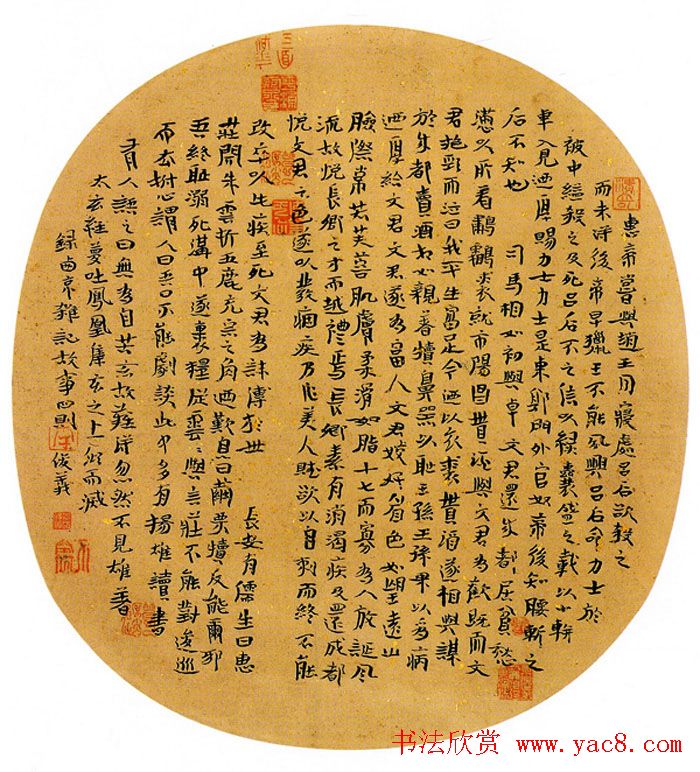 惠帝嘗與趙王同寢處呂后欲殺之
而未得後帝早獵王不能夙興呂后命力士於
被中縊殺之及死呂后不之信以綠囊盛之載以小軿
車入見迺厚賜力士力士是東郭門外官奴帝後知腰斬之
后不知也 司馬相如初與卓文君還成都居貧愁
懣以所着鷫鸘裘就市陽昌貰酒與文君為歡既而文
君抱頸而泣曰我平生富足今迺以衣裘貰酒遂相與謀
於成都賣酒相如親着犢鼻褌以恥王孫王孫果以為病
迺厚給文君文君遂為富人文君姣好眉色如望遠山
臉際常若芙蓉肌膚柔滑如脂十七而寡為人放誕風
流故悅長卿之才而越禮焉長卿素有消渴疾及還成都
悅文君之色遂以發痼疾乃作美人賦欲以自刺而終不能
改卒以此疾至死文君為誄傳於世 長安有儒生曰惠
莊聞朱雲折五鹿充宗之角迺歎息曰繭栗犢反能爾邪
吾終恥溺死溝中遂裹糧從雲雲與言莊不能對逡巡
而去拊心謂人曰吾口不能劇談此中多有 揚雄讀書
有人語之曰無為自苦玄故難傳忽然不見雄著
太玄經夢吐鳳凰集玄之上頃而滅
錄西京雜記故事四則 俊義
书法欣赏 www.yac8.com